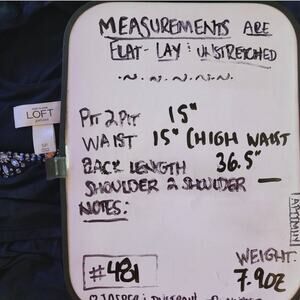 MEASUREMENTS ARE
FLAT-LAY : UNSTRETCHED
LOFT
PIT 2 PIT 15"
WAIST 15" (HIGH WAIST
BACK LENGTH 36.5"
SHOULDER 2 SHOULDER —
NOTES:
WEIGHT:
#481
7.9OZ